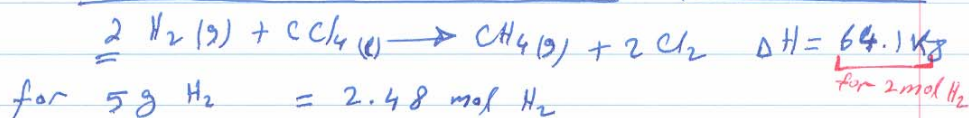 2 H₂(g) + CCl₄(l) → CH₄(g) + 2 Cl₂ ΔH = 64.1 KJ
for 2 mol H₂
for 5 g H₂ = 2.48 mol H₂